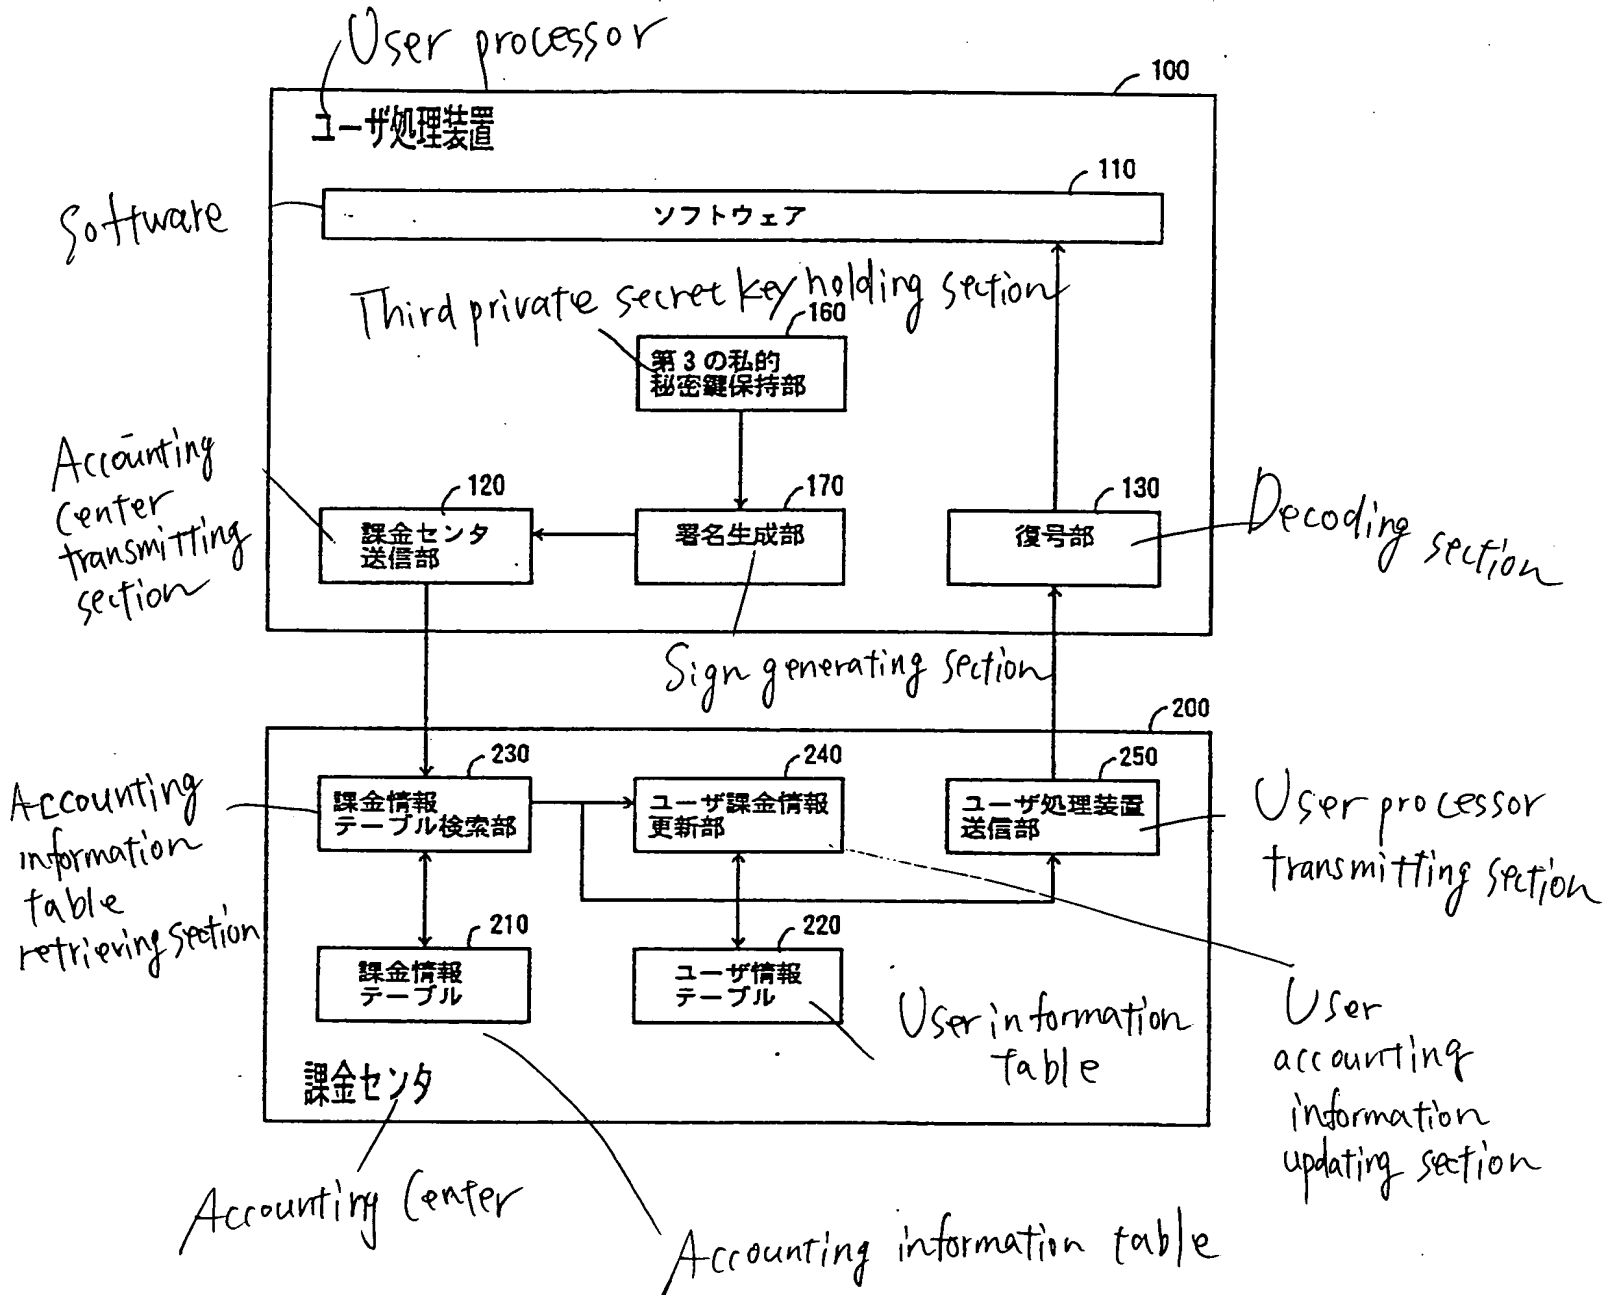 User processor
100
ユーザ処理装置
110
Software
ソフトウェア
Third private secret key holding section
160
第3の私的
秘密鍵保持部
Accounting
center
transmitting
section
120
課金センタ
送信部
170
署名生成部
130
復号部
Decoding
section
Sign generating section
200
Accounting
information
table
retrieving section
230
課金情報
テーブル検索部
240
ユーザ課金情報
更新部
250
ユーザ処理装置
送信部
User processor
transmitting section
210
課金情報
テーブル
220
ユーザ情報
テーブル
User information
table
User
accounting
information
updating section
課金センタ
Accounting Center
Accounting information table